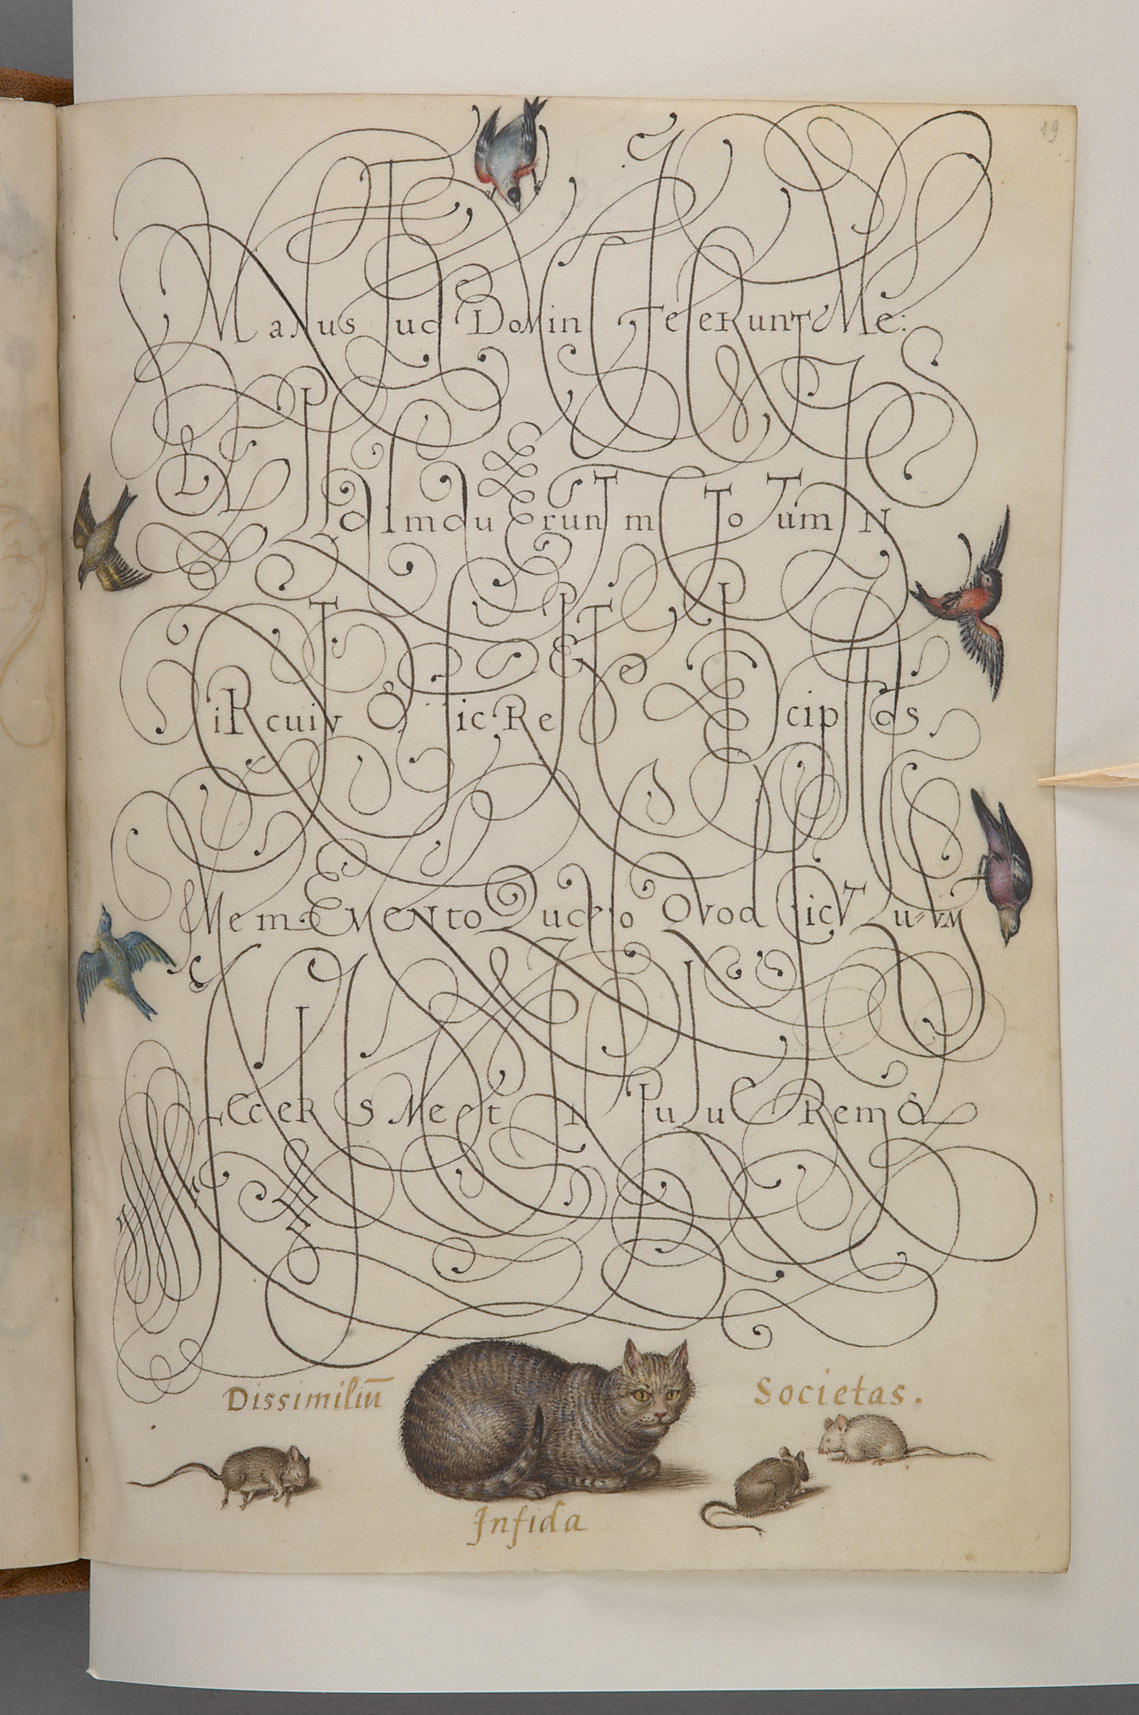 19
Manus Tuæ Domine Fecerunt Me:
Et Plasmauerunt me Totum IN
CiRcuitv & sic Repente Præcipitas
Me memento Quæso Qvod sicvT Lutvm
Feceris Me et In Puluerem &
Dissimiliū Societas.
Infida